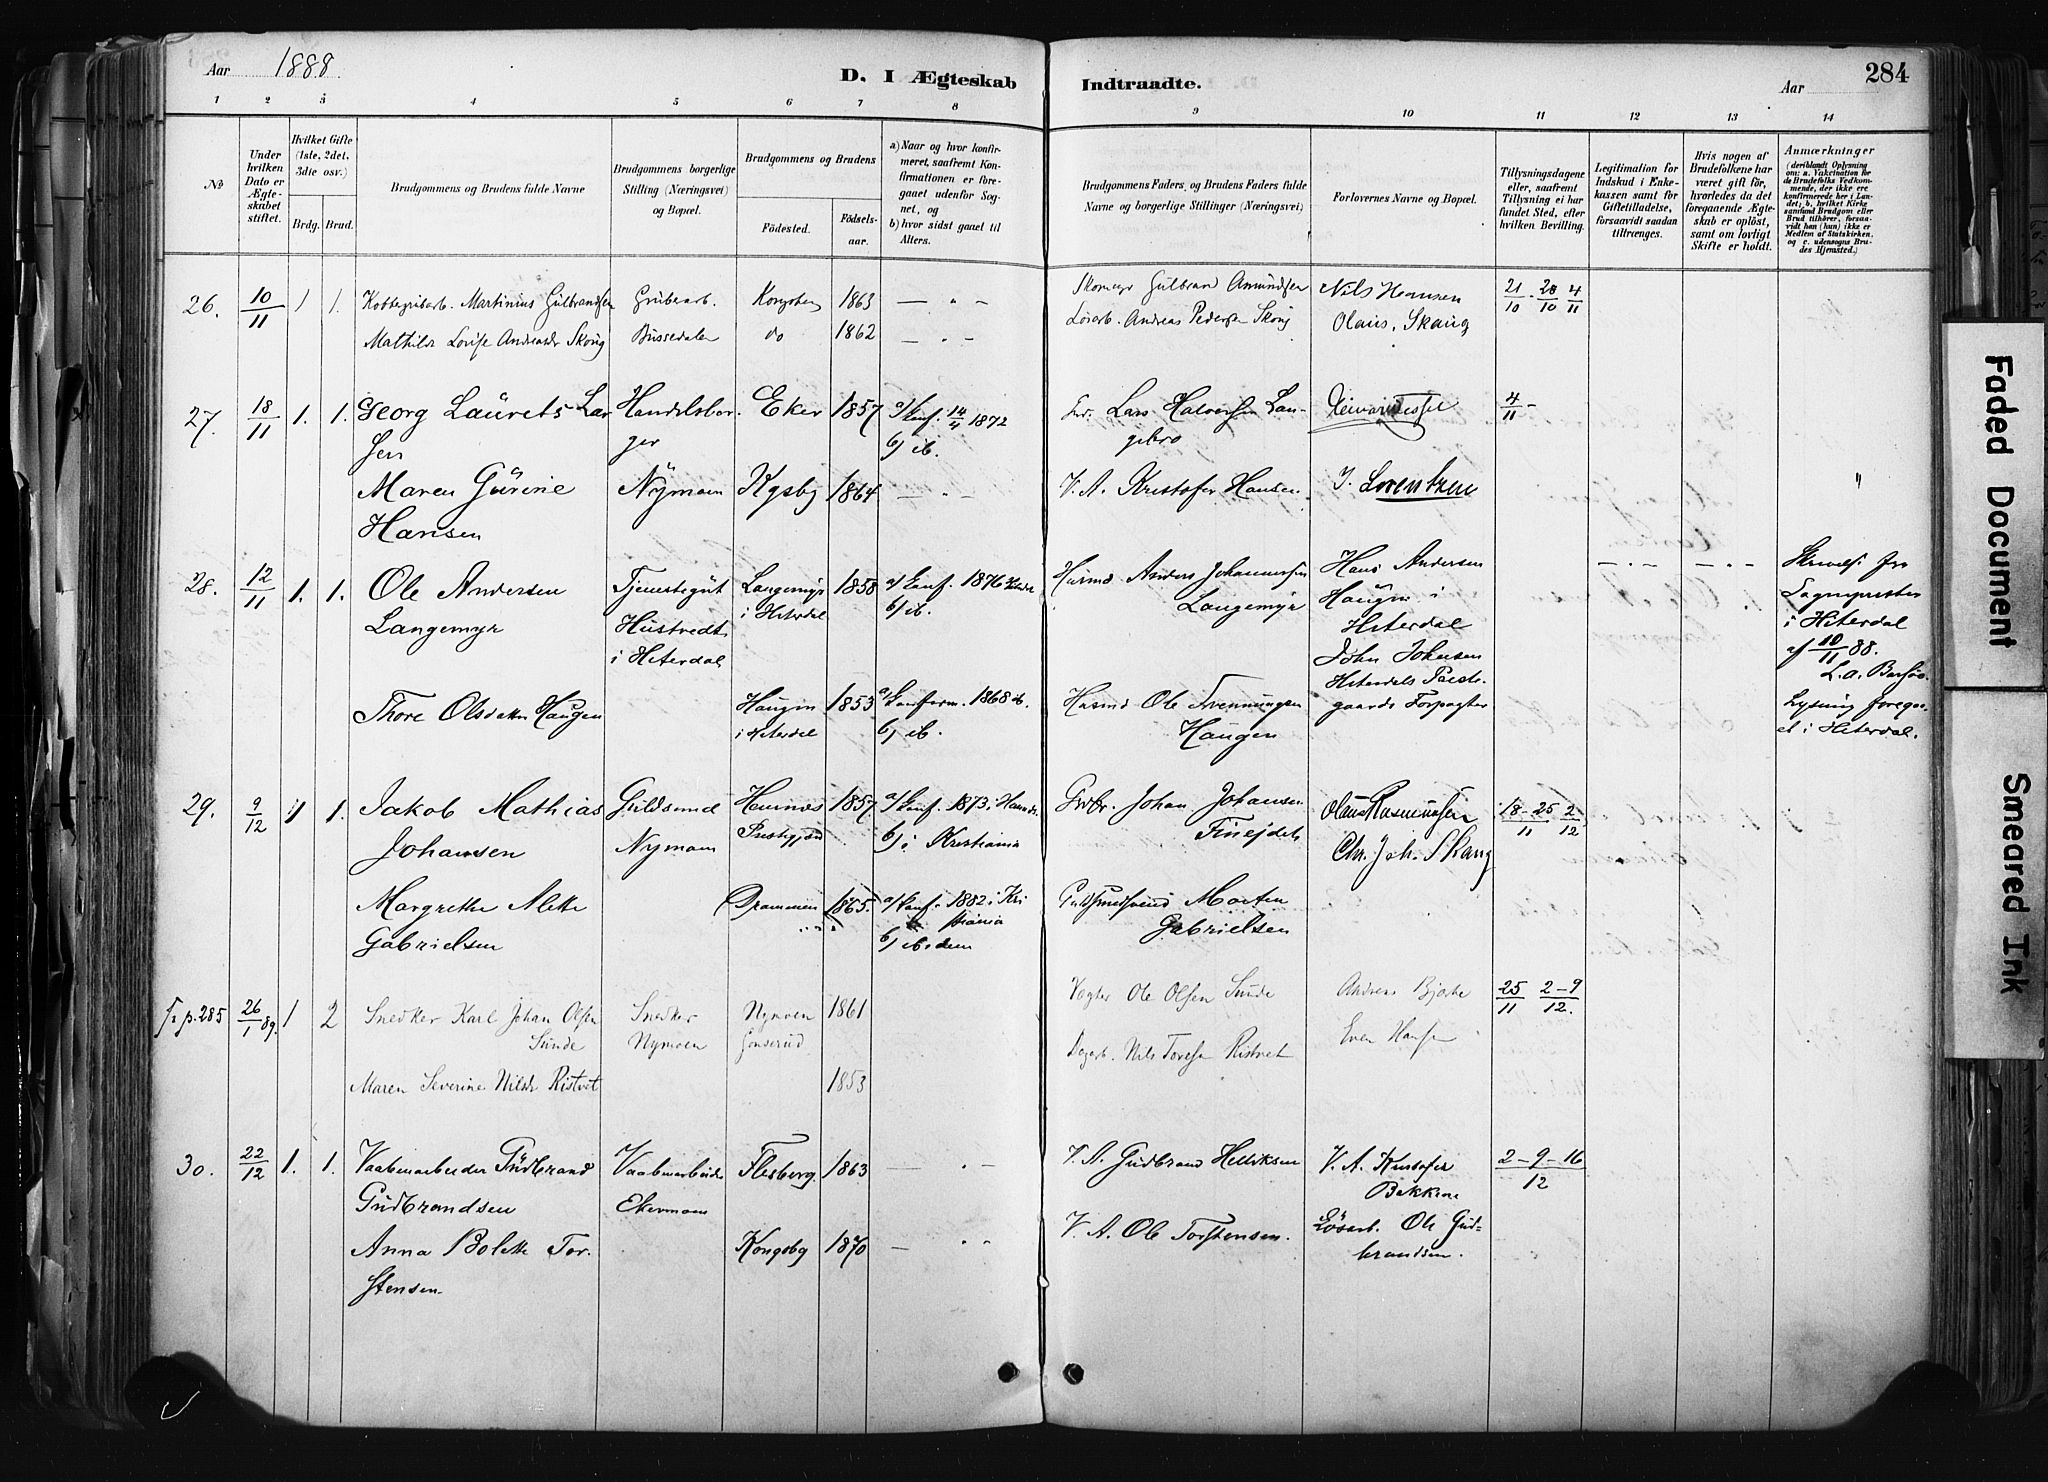 Aar 1888.
D. I Ægteskab Indtraadte.
Aar 284
1 2 3 4 5 6 7 8 9 10 11 12 13 14
No
Under hvilken Dato er Ægteskabet stiftet.
Hvilket Gifte (1ste, 2det, 3die osv.)
Brdg. Brud.
Brudgommens og Brudens fulde Navne
Brudgommens borgerlige Stilling (Næringsvei) og Bopæl.
Brudgommens og Brudens
Fødested.
Fødselsaar.
a) Naar og hvor konfirmeret, saafremt Konfirmationen er foregaaet udenfor Sognet, og
b) hvor sidst gaaet til Alters.
Brudgommens Faders, og Brudens Faders fulde Navne og borgerlige Stillinger (Næringsvei)
Forlovernes Navne og Bopæl.
Tillysningsdagene eller, saafremt Tillysning ei har fundet Sted, efter hvilken Bevilling.
Legitimation for Indskud i Enkekassen samt for Giftetilladelse, forsaavidt saadan tiltrænges.
Hvis nogen af Brudefolkene har været gift før, hvorledes da det foregaaende Ægteskab er opløst, samt om lovligt Skifte er holdt.
Anmærkninger
(deriblandt Oplysning om: a. Vaksination for de Brudefolks Vedkommende, der ikke ere konfirmerede her i Landet; b. hvilket Kirkesamfund Brudgom eller Brud tilhører, forsaavidt han (hun) ikke er Medlem af Statskirken, og c. udensogns Brudes Hjemsted.)
26. 10/11 1 1. Martinius Gulbrandsen Grubearb. 1863 — " — Gulbrand Amundsen Nils Hansen 21/10 . 28/10 4/11
Mathilde Lovise do 1862 — " — Andreas Pedersen Skoug Olaus. Skaug
27. 18/11 1. 1. Georg Laurets Lar Handelsbor. Eker 1857 a/ Konf. 14/4 1872 Lars Halvorsen Lan- 4/11 -
sen ger b/ ib. gebro
Maren Gurine Nymoen Kgsbg 1864 — " — V. A. Kristofer Hansen. J. Lorentzen "
Hansen
28. 12/11 1. 1. Ole Andersen Tjenestegut Langemyr 1858 a/ Konf. 1876 Anders Johannessen Hans Andersen — " — — " —
Langemyr Hustvedt i Hiterdal b/ ib. Langemyr Haugen i Hiterdal
i Hiterdal John Johnsen
Hiterdals Præste-
gaards Forpagter
Sognepresten
i Hiterdal
af 10/11 88.
Lysning foregaa-
et i Hiterdal.
Thore Olsdatter Haugen Haugen 1853 a/ Konform. 1868 ib. Ole Svennungsen
i Hiterdal b/ ib. Haugen
29. 9/12 1 1. Jakob Mathias Guldsmed 1857 a/ Konf. 1873 i Johan Johansen Olaus Rasmussen 18-25/11 2/12
Johansen Nymoen b/ i Kristiania Chr. Joh. Skaug
Margrethe Mette Drammen 1865. a/ Konf. 1882 i Kri Morten
Gabrielsen stiania Gabrielsen
b/ ibidem
p. 285 26/1 89. 1 2 Snedker Karl Johan Olsen Snedker Nymoen 1861 Vogter Ole Olsen Sunde Andreas Bjerke 25/11 2-9/12.
Sunde Nymoen Gonserud Dagarb. Nils Toresen Ristvet Even Hansen
Maren Severine Nilsdr Ristvet 1853
30. 22/12 1. 1. Vaabenarbeider Gudbrand Vaabenarbeider Flesberg. 1863 — " — V. A. Gudbrand Helliksen V. A. Kristofer 2-9-16/12
Gudbrandsen Ekermoen Bakkene
Anna Bolette Tor- Kongsbg 1870 — " " V. A. Ole Torstensen. Løsarb. Ole Gud-
stensen brandsen.
Faded Document
Smeared Ink